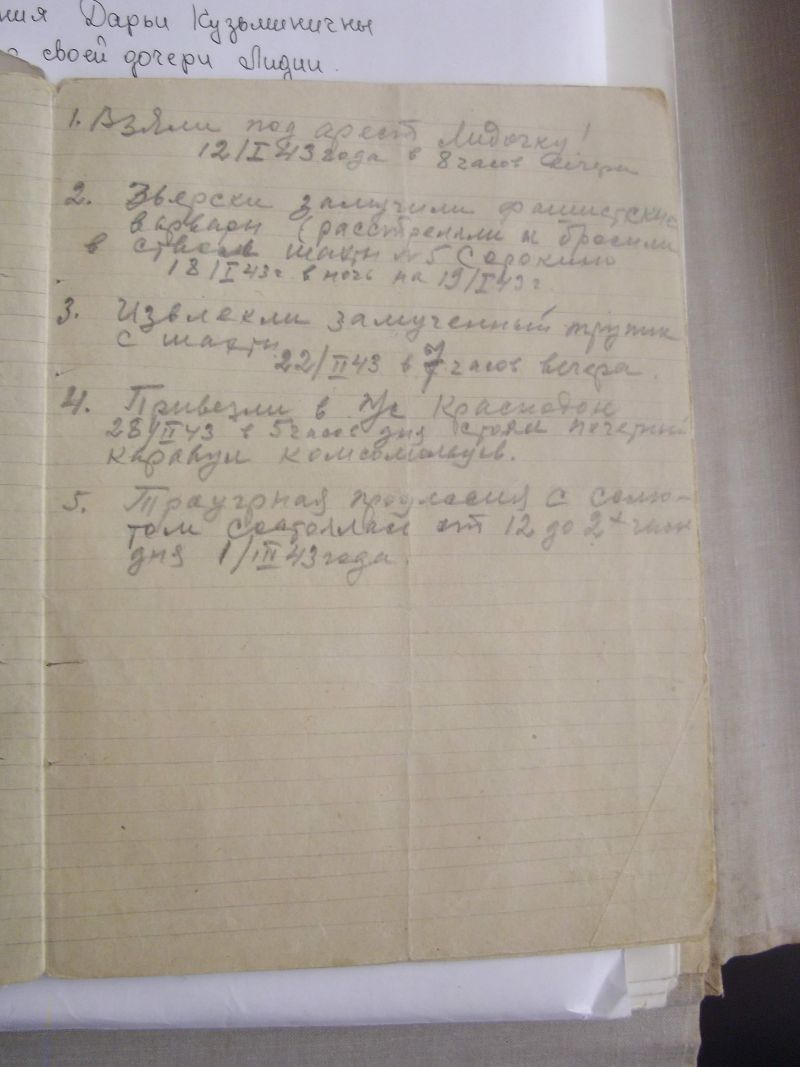 ния Дарьи Кузьминичны
о своей дочери Лидии.
1. Взяли под арест Лидочку!
12/I 43 года в 8 часов вечера
2. Зверски замучили фашистские
варвары (расстреляли и бросили
в ствол шахты №5 Сорокино
18/I 43 г. в ночь на 19/I 43 г.
3. Извлекли замученный трупик
с шахты.
22/II 43 в 7 часов вечера.
4. Привезли в Краснодон
28/II 43 в 5 часов дня стоял почетный
караул комсомольцев.
5. Траурная с салю-
том состоялась от 12 до 2х час
дня 1/III 43 года.